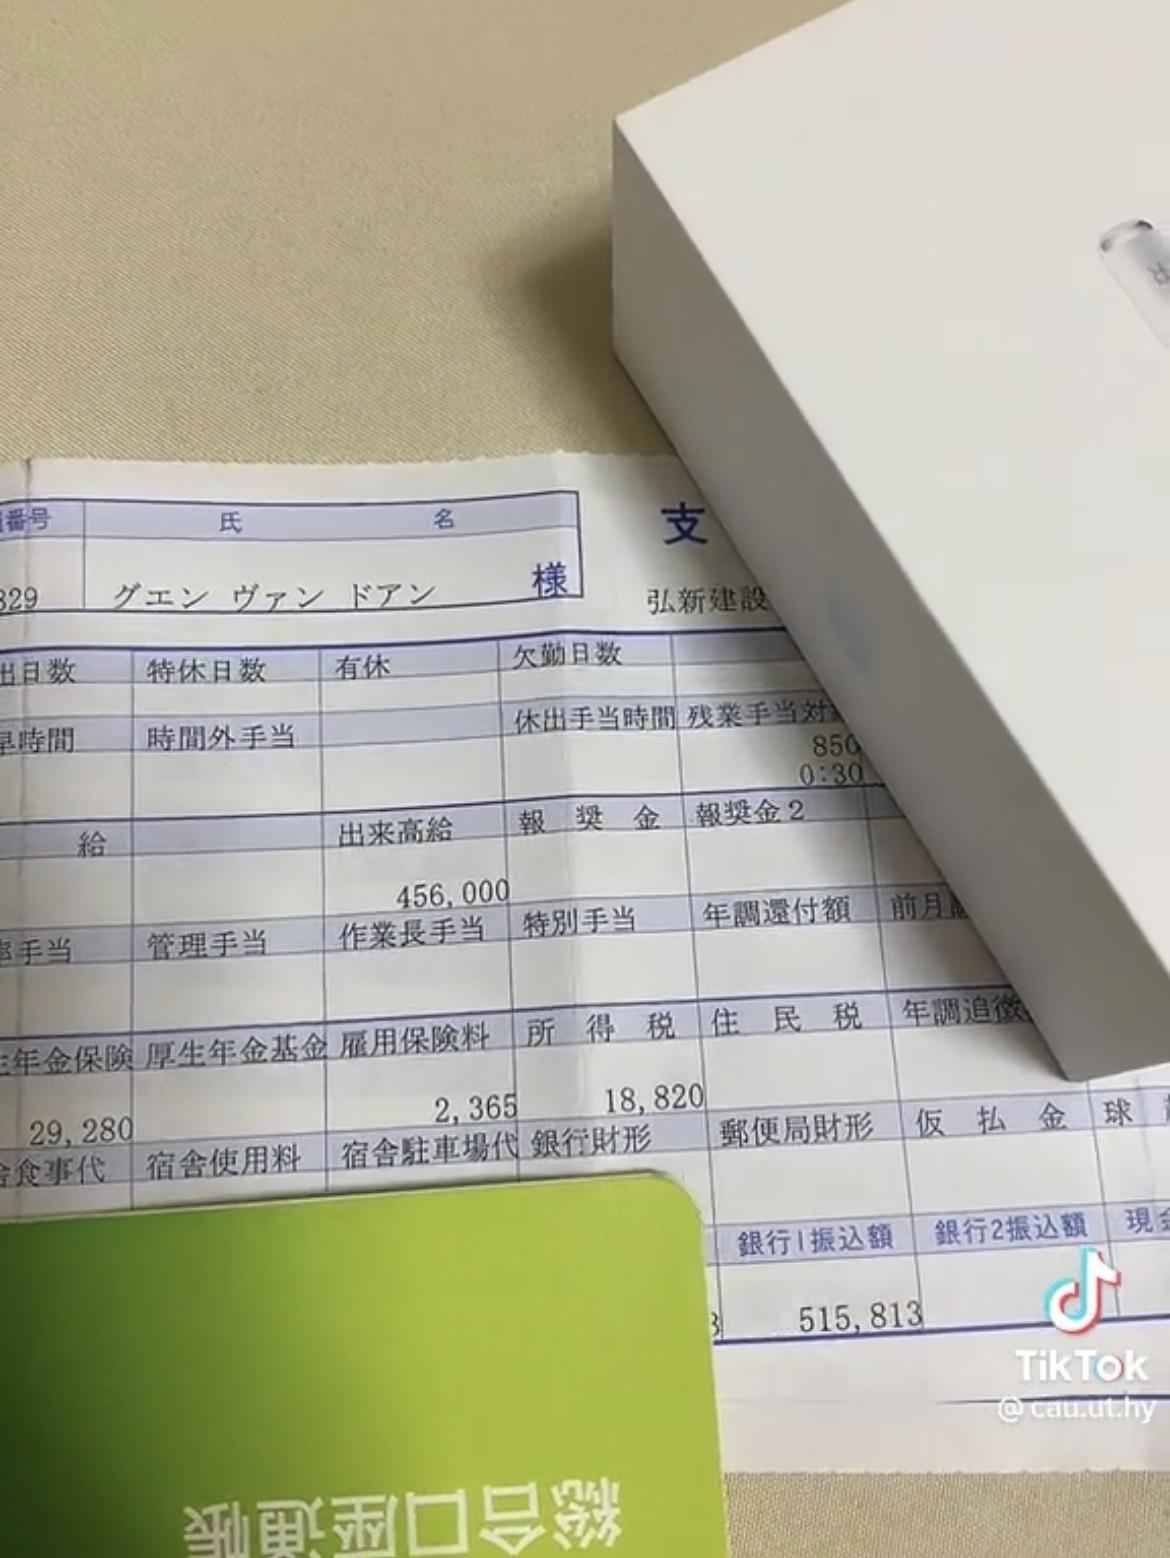 番号 氏 名
829 グエン ヴァン ドアン 様
支
弘新建設
出日数 特休日数 有休 欠勤日数
早時間 時間外手当 休出手当時間 残業手当対
850
0:30
給 出来高給 報奨金 報奨金2
456,000
手当 管理手当 作業長手当 特別手当 年調還付額 前月
生年金保険 厚生年金基金 雇用保険料 所得税 住民税 年調追徴
29,280 2,365 18,820
舎食事代 宿舎使用料 宿舎駐車場代 銀行財形 郵便局財形 仮払金 球
銀行1振込額 銀行2振込額 現金
3 515,813
TikTok
@cau.ut.hy
総合口座通帳